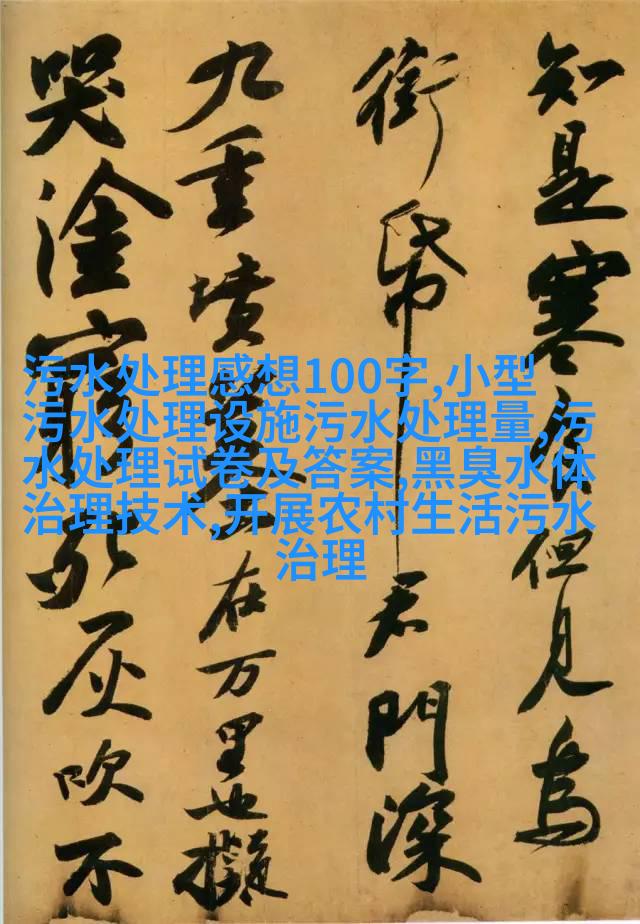 知是寒食但見烏
銜帋君門深
九重墳墓在万里也擬
哭塗窮死灰吹不
污水处理感想100字,小型
污水处理设施污水处理量,污
水处理试卷及答案,黑臭水体
治理技术,开展农村生活污水
治理